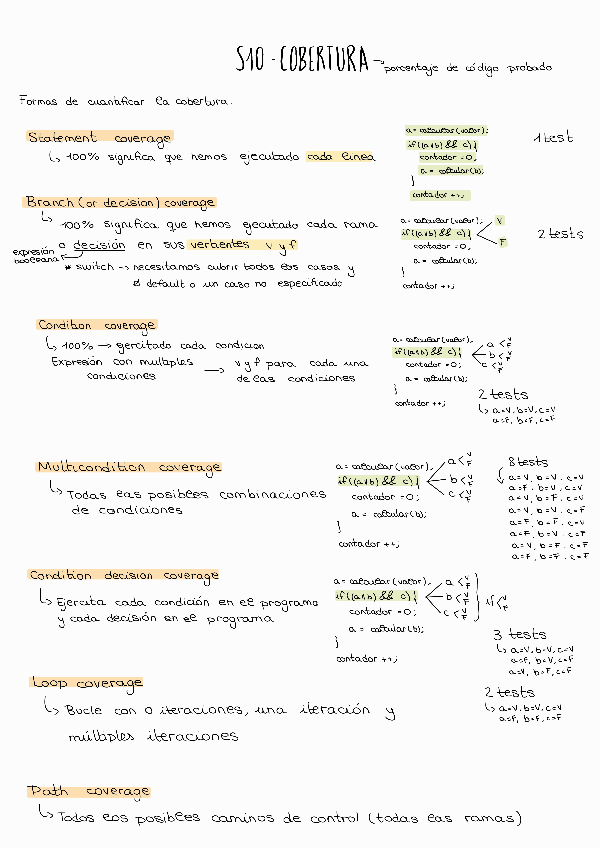 S10 - COBERTURA → porcentaje de código probado
Formas de cuantificar la cobertura.
Statement coverage
↳ 100% significa que hemos ejecutado cada línea
a = calcular(valor);
if((a∨b) && c){
contador = 0;
a = calcular(b);
}
contador ++;
1 test
Branch (or decision) coverage
↳ 100% significa que hemos ejecutado cada rama
o decisión en sus vertientes v y f
expresión
booleana
* switch → necesitamos cubrir todos los casos y
el default o un caso no especificado
a = calcular(valor);
if((a∨b) && c){
contador = 0;
a = calcular(b);
}
contador ++;
V
F
2 tests
Condition coverage
↳ 100% → ejercitado cada condicion
Expresión con multiples → v y f para cada una
condiciones de las condiciones
a = calcular(valor);
if((a∨b) && c){
contador = 0;
a = calcular(b);
}
contador ++;
a < V F
b < V F
c < V F
2 tests
↳ a=V, b=V, c=V
a=F, b=F, c=F
Multicondition coverage
↳ Todas las posibles combinaciones
de condiciones
a = calcular(valor);
if((a∨b) && c){
contador = 0;
a = calcular(b);
}
contador ++;
a < V F
b < V F
c < V F
8 tests
a=V, b=V, c=V
a=F, b=V, c=V
a=V, b=F, c=V
a=V, b=V, c=F
a=F, b=F, c=V
a=F, b=V, c=F
a=V, b=F, c=F
a=F, b=F, c=F
Condition decision coverage
↳ Ejercita cada condición en el programa
y cada decisión en el programa
a = calcular(valor);
if((a∨b) && c){
contador = 0;
a = calcular(b);
}
contador ++;
a < V F
b < V F
c < V F
if < V F
3 tests
↳ a=V, b=V, c=V
a=F, b=V, c=F
a=V, b=F, c=F
2 tests
↳ a=V, b=V, c=V
a=F, b=F, c=F
Loop coverage
↳ Bucle con 0 iteraciones, una iteración y
múltiples iteraciones
Path coverage
↳ Todos los posibles caminos de control (todas las ramas)